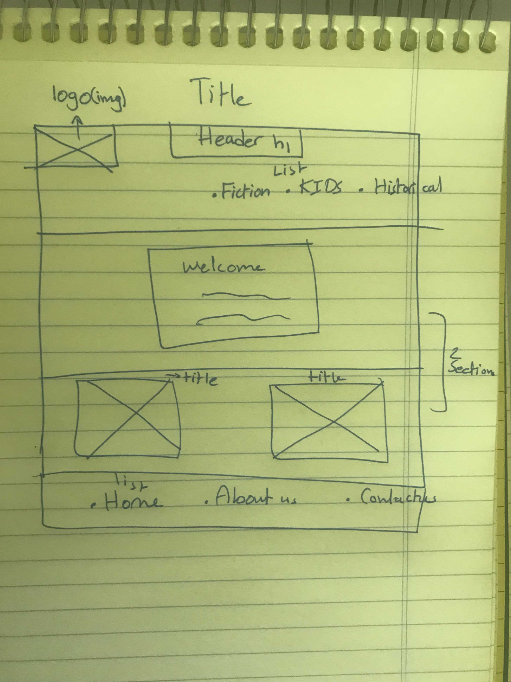 Title
logo(img)
Header h1
List
. Fiction . KIDS . Historical
Welcome
2
Section
title
title
list
. Home . About us . Contact us